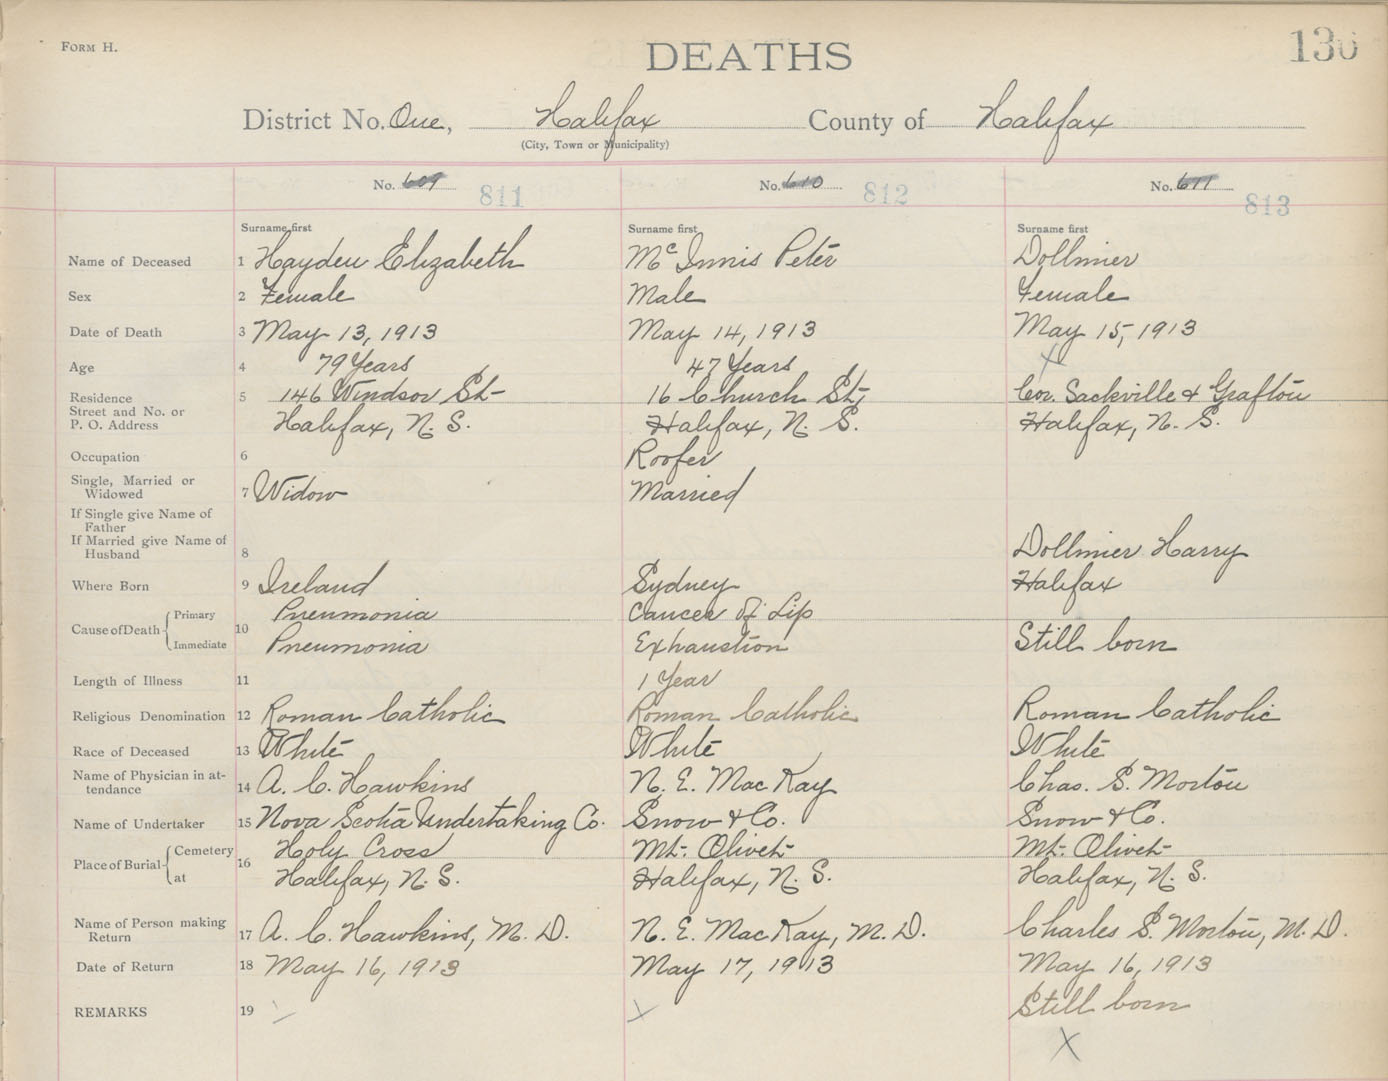 FORM H.
DEATHS
136
District No. One, Halifax County of Halifax
(City, Town or Municipality)
No. 609 811 No. 610 812 No. 611 813
Surname first Surname first Surname first
Name of Deceased 1 Hayden Elizabeth McInnis Peter Dollmier
Sex 2 Female Male Female
Date of Death 3 May 13, 1913 May 14, 1913 May 15, 1913
Age 4 79 Years 47 Years X
Residence 5 146 Windsor St- 16 Church St, Cor. Sackville & Grafton
Street and No. or
P. O. Address Halifax, N. S. Halifax, N. S. Halifax, N. S.
Occupation 6 Roofer
Single, Married or
Widowed 7 Widow Married
If Single give Name of
Father
If Married give Name of
Husband 8 Dollmier Harry
Where Born 9 Ireland Sydney Halifax
Cause of Death 10 Primary Pneumonia Cancer of Lip
Immediate Pneumonia Exhaustion Still born
Length of Illness 11 1 Year
Religious Denomination 12 Roman Catholic Roman Catholic Roman Catholic
Race of Deceased 13 White White White
Name of Physician in at-
tendance 14 A. C. Hawkins N. E. MacKay Chas. S. Morton
Name of Undertaker 15 Nova Scotia Undertaking Co. Snow & Co. Snow & Co.
Place of Burial 16 Cemetery Holy Cross Mt. Olivet Mt. Olivet
at Halifax, N. S. Halifax, N. S. Halifax, N. S.
Name of Person making
Return 17 A. C. Hawkins, M. D. N. E. MacKay, M. D. Charles S. Morton, M. D.
Date of Return 18 May 16, 1913 May 17, 1913 May 16, 1913
REMARKS 19 X Still born
X